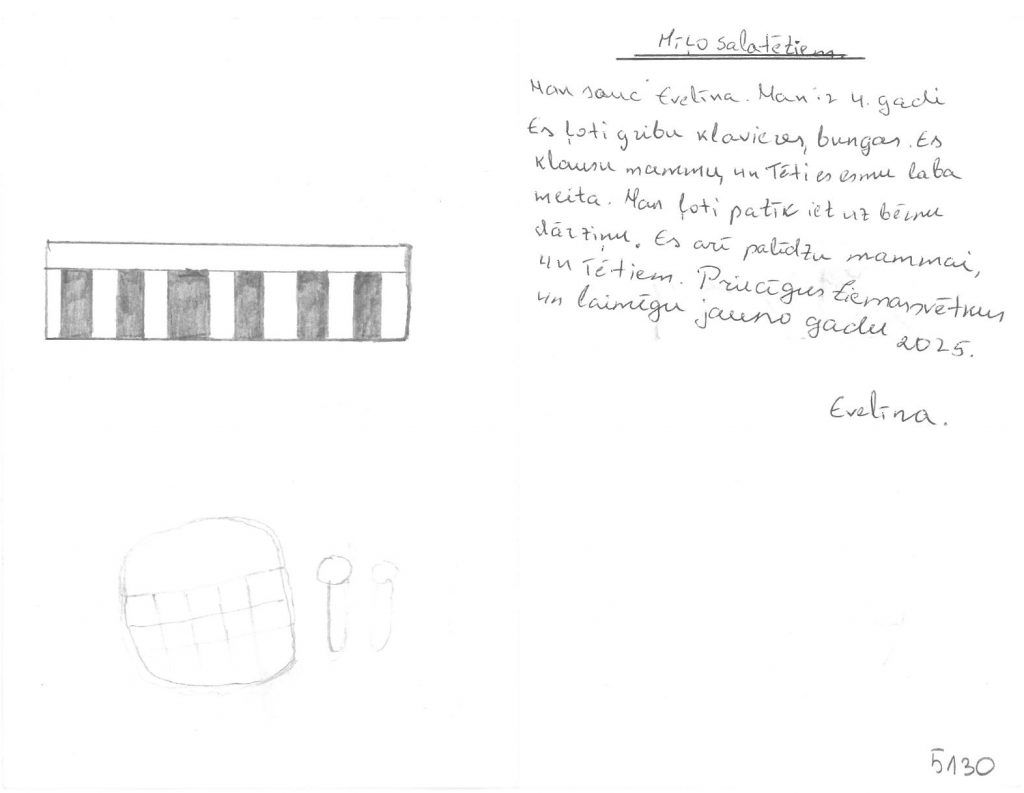 Mīļo salatētiem.
Man sauc Evelīna. Man ir 4. gadi
Es ļoti gribu klavieres, bungas. Es
klausu mammu, un Tēti es esmu laba
meita. Man ļoti patīk iet uz bērnu
dārziņu. Es arī palīdzu mammai,
un Tētiem. Priecīgus Ziemassvētkus
un laimīgu jauno gadu
2025.
Evelīna.
5130